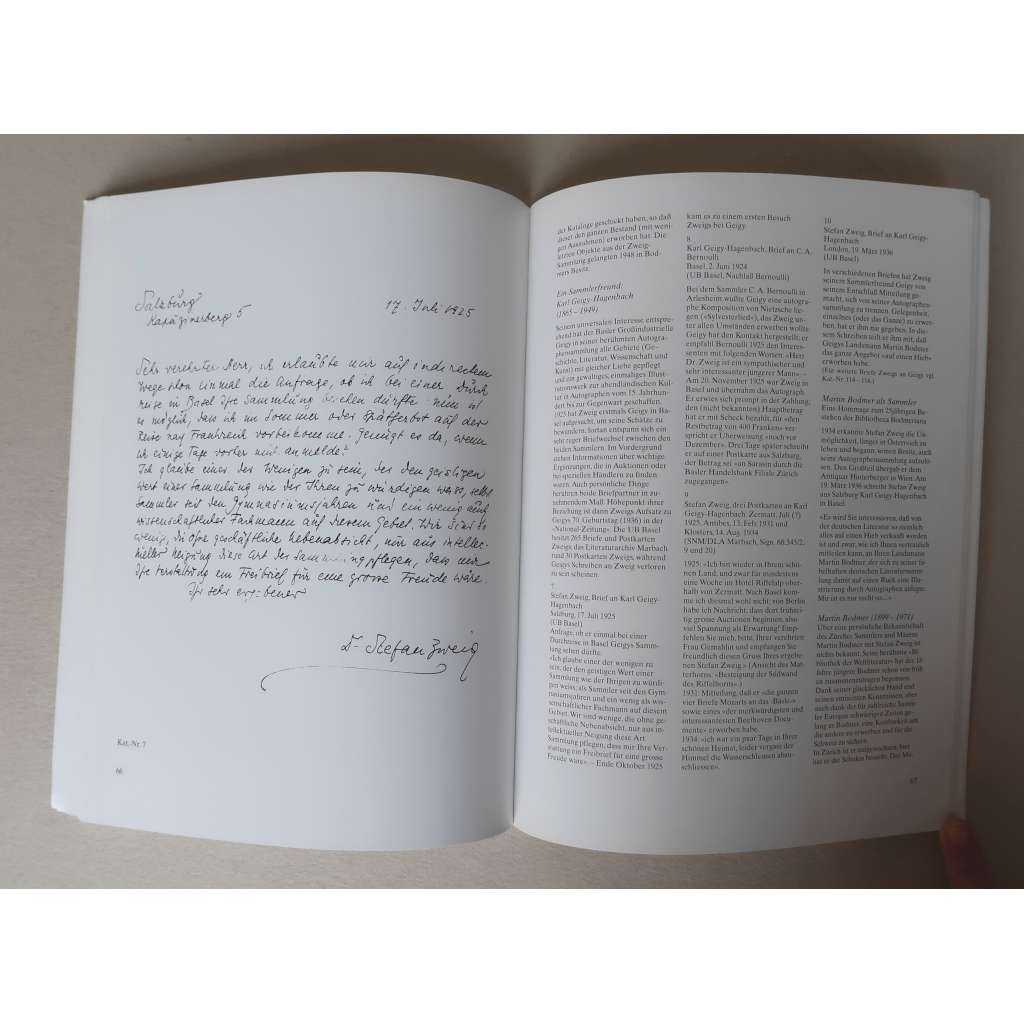 Salzburg
Kapuzinerberg 5
17. Juli 1925
Sehr verehrter Herr, ich erlaubte mir auf indirectem
Wege schon einmal die Anfrage, ob ich bei einer Durch
reise in Basel Ihre Sammlung dürfte. nun ist
es möglich, dass ich im Sommer oder Spätherbst auf der
Reise nach Frankreich vorbeikomme. Genügt es da, wenn
ich einige Tage vorher mich anmelde?
Ich glaube einer der Wenigen zu sein, der den geistigen
Wert einer Sammlung wie der Ihren zu würdigen weiss, selbst
Sammler seit den Gymnasiumsjahren und ein wenig auch
wissenschaftlicher Fachmann auf diesem Gebiet. Wir sind so
wenig, die ohne geschäftliche Nebenabsicht, nur aus intellec-
tueller Neigung diese Art des Sammelns pflegen, dass mir
Ihre Verstattung ein Freibrief für eine grosse Freude wäre.
Ihr sehr ergebener
Dr Stefan Zweig
Kat.-Nr. 7
66
der Kataloge geschickt haben, so daß
dieser den ganzen Bestand (mit weni-
gen Ausnahmen) erworben hat. Die
letzten Objekte aus der Zweig-
Sammlung gelangten 1948 in Bod-
mers Besitz.
Ein Sammlerfreund:
Karl Geigy-Hagenbach
(1865 – 1949)
Seinem universalen Interesse entspre-
chend hat der Basler Großindustrielle
Geigy in seiner berühmten Autogra-
phensammlung alle Gebiete (Ge-
schichte, Literatur, Wissenschaft und
Kunst) mit gleicher Liebe gepflegt
und ein gewaltiges, einmaliges Illust-
rationswerk zur abendländischen Kul-
tur vom 15. Jahrhundert
bis zur Gegenwart geschaffen.
1925 hat Zweig erstmals Geigy in Ba-
sel aufgesucht, um seine Schätze zu
bewundern, fortan entspann sich ein
sehr reger Briefwechsel zwischen den
beiden Sammlern. Im Vordergrund
stehen Informationen über wichtige
Ergänzungen, die in Auktionen oder
bei speziellen Händlern zu finden
waren. Auch persönliche Dinge
berühren beide Briefpartner in zu-
nehmendem Maß. Höhepunkt ihrer
Beziehung ist dann Zweigs Aufsatz zu
Geigys 70. Geburtstag (1936) in der
«National-Zeitung». Die UB Basel
besitzt 265 Briefe und Postkarten
Zweigs; das Literaturarchiv Marbach
rund 30 Postkarten Zweigs, während
Geigys Schreiben an Zweig verloren
zu sein scheinen.
7
Stefan Zweig, Brief an Karl Geigy-
Hagenbach
Salzburg, 17. Juli 1925
(UB Basel)
Anfrage, ob er einmal bei einer
Durchreise in Basel Geigys Samm-
lung sehen dürfte.
«Ich glaube einer der wenigen zu
sein, der den geistigen Wert einer
Sammlung wie der Ihrigen zu würdi-
gen weiss, als Sammler seit den Gym-
nasiumsjahren und ein wenig als wis-
senschaftlicher Fachmann auf diesem
Gebiet. Wir sind wenige, die ohne ge-
schäftliche Nebenabsicht, nur aus in-
tellektueller Neigung diese Art
Sammlung pflegen, dass mir Ihre Ver-
stattung ein Freibrief für eine grosse
Freude wäre». – Ende Oktober 1925
kam es zu einem ersten Besuch
Zweigs bei Geigy.
8
Karl Geigy-Hagenbach, Brief an C. A.
Bernoulli
Basel, 2. Juni 1924
(UB Basel, Nachlaß Bernoulli)
Bei dem Sammler C. A. Bernoulli in
Arlesheim wußte Geigy eine autogra-
phe Komposition von Nietzsche lie-
gen («Sylvesterlied»), das Zweig un-
ter allen Umständen erwerben wollte.
Geigy hat den Kontakt hergestellt; er
empfahl Bernoulli 1925 den Interes-
senten mit folgenden Worten: «Herr
Dr. Zweig ist ein sympathischer und
sehr interessanter jüngerer Mann» –
Am 20. November 1925 war Zweig in
Basel und übernahm das Autograph.
Er erwies sich prompt in der Zahlung,
den (nicht bekannten) Hauptbetrag
hat er mit Scheck bezahlt, für «den
Restbetrag von 400 Franken» ver-
spricht er Überweisung «noch vor
Dezember». Drei Tage später schreibt
er auf einer Postkarte aus Salzburg,
der Betrag sei «an Sarasin durch die
Basler Handelsbank Filiale Zürich
zugegangen».
9
Stefan Zweig, drei Postkarten an Karl
Geigy-Hagenbach, Zermatt, Juli (?)
1925, Antibes, 13. Feb. 1931 und
Klosters, 14. Aug. 1934
(SNM/DLA Marbach, Sign. 68.345/2,
9 und 20)
1925: «Ich bin wieder in Ihrem schö-
nen Land, und zwar für mindestens
eine Woche im Hotel Riffelalp ober-
halb von Zermatt. Nach Basel kom-
me ich diesmal wohl nicht; von Berlin
habe ich Nachricht, dass dort früh-
zeitig grosse Auctionen beginnen, also
viel Spannung als Erwartung! Emp-
fehlen Sie mich, bitte, Ihrer verehrten
Frau Gemahlin und empfangen Sie
freundlich diesen Gruss Ihres ergebe-
nen Stefan Zweig.» (Ansicht des Mat-
terhorns. «Besteigung der Südwand
des Riffelhorns».)
1931: Mitteilung, daß er «die ganzen
vier Briefe Mozarts an das ‹Bäsle›»
sowie eines «der merkwürdigsten und
interessantesten Beethoven Docu-
mente» erworben habe.
1934: «ich war ein paar Tage in Ihrer
schönen Heimat, leider vergass der
Himmel die Wasserschleusen abzu-
schliessen».
10
Stefan Zweig, Brief an Karl Geigy-
Hagenbach
London, 19. März 1936
(UB Basel)
In verschiedenen Briefen hat Zweig
seinem Sammlerfreund Geigy von
seinem Entschluß Mitteilung ge-
macht, sich von seiner Autographen-
sammlung zu trennen. Gelegenheit,
einzelnes (oder das Ganze) zu erwer-
ben, hat er ihm nie gegeben. In die-
sem Schreiben teilt er ihm mit, daß
Geigys Landsmann Martin Bodmer
das ganze Angebot «auf einen Hieb»
erworben habe.
(Für weitere Briefe Zweigs an Geigy vgl.
Kat.-Nr. 114 – 116.)
Martin Bodmer als Sammler
Eine Hommage zum 25jährigen Be-
stehen der Bibliotheca Bodmeriana
1934 erkannte Stefan Zweig die Un-
möglichkeit, länger in Österreich zu
leben und begann, seinen Besitz, auch
seine Autographensammlung aufzulö-
sen. Den Großteil übergab er dem
Antiquar Hinterberger in Wien. Am
19. März 1936 schreibt Stefan Zweig
aus Salzburg Karl Geigy-Hagenbach
in Basel:
«Es wird Sie interessieren, daß von
der deutschen Literatur so ziemlich
alles auf einen Hieb verkauft worden
ist und zwar, wie ich Ihnen vertraulich
mitteilen kann, an Ihren Landsmann
Martin Bodmer, der sich bei seiner fa-
belhaften deutschen Literatursamm-
lung damit auf einen Ruck eine Illu-
strierung durch Autographen zulegte.
Mir ist es nur recht so…»
Martin Bodmer (1899 – 1971)
Über eine persönliche Bekanntschaft
des Zürcher Sammlers und Mäzens
Martin Bodmer mit Stefan Zweig ist
nichts bekannt. Seine berühmte «Bi-
bliothek der Weltliteratur» hat der 18
Jahre jüngere Bodmer schon von früh
an zusammenzutragen begonnen.
Dank seiner glücklichen Hand und
seinen eminenten Kenntnissen, aber
auch dank der für zahlreiche Samm-
ler Europas schwierigen Zeiten gelang
es Bodmer, eine Kostbarkeit um
die andere zu erwerben und für die
Schweiz zu sichern.
In Zürich ist er aufgewachsen, hier
hat er die Schulen besucht. Das Ma-
67